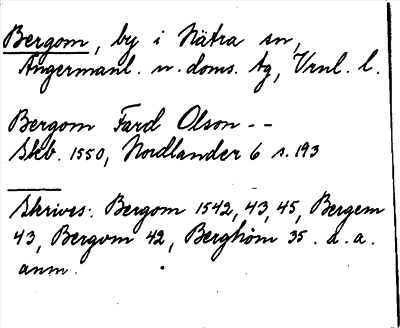 Bergom, by i Nätra sn,
Ångermanl. n. doms. tg, Vrnl. l.
Bergom Fard Olson --
Skb. 1550, Nordlander 6 s. 193
Skrives: Bergom 1542, 43, 45, Bergem
43, Bergom 42, Berghom 35. a. a.
anm.